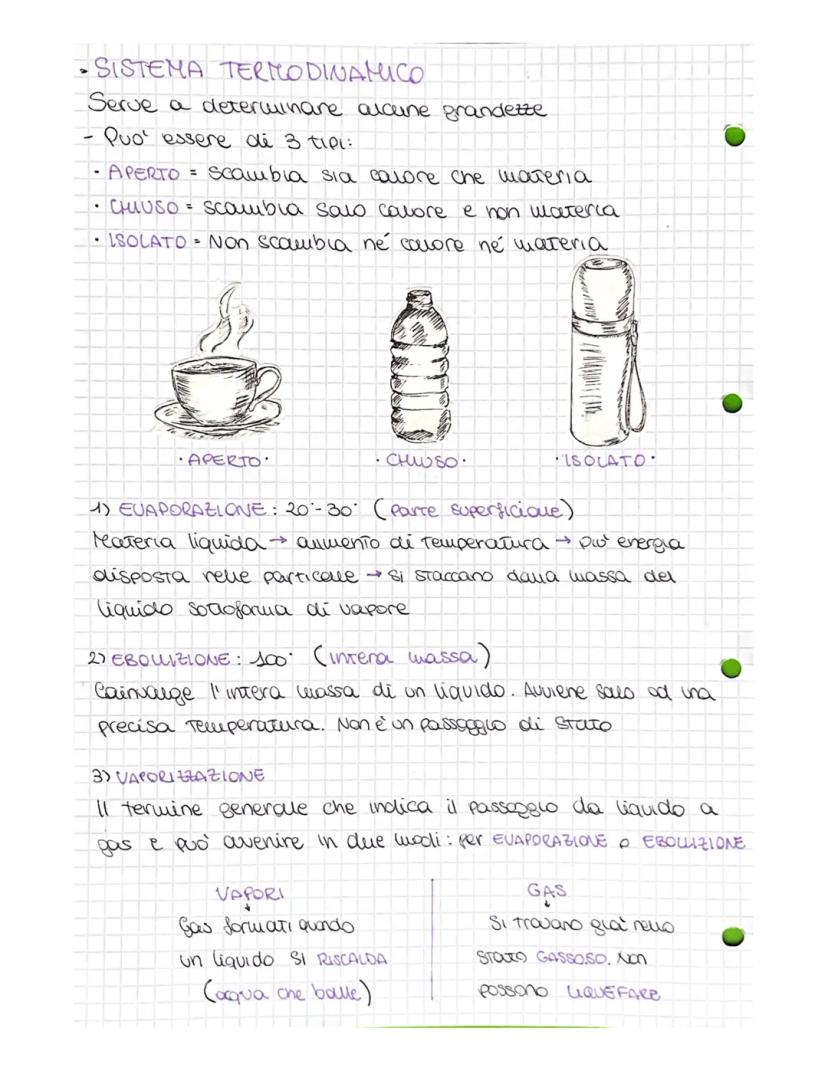 • SISTEMA TERMODINAMICO
Serve a determinare alcune grandezze
- Può essere di 3 tipi:
• APERTO = scambia sia calore che materia
• CHIUSO = scambia solo calore e non materia
• ISOLATO = Non scambia né calore né materia
• APERTO •
• CHIUSO •
• ISOLATO •
1) EVAPORAZIONE: 20°-30° (parte superficiale)
Materia liquida → aumento di temperatura → più energia
disposta nelle particelle → si staccano dalla massa del
liquido sottoforma di vapore
2) EBOLLIZIONE: 100° (intera massa)
Coinvolge l'intera massa di un liquido. Avviene solo ad una
precisa temperatura. Non è un passaggio di stato
3) VAPORIZZAZIONE
Il termine generale che indica il passaggio da liquido a
gas e può avvenire in due modi: per EVAPORAZIONE o EBOLLIZIONE
VAPORI
↓
Gas formati quando
un liquido si RISCALDA
(acqua che bolle)
GAS
↓
Si trovano già nello
stato GASSOSO. Non
possono LIQUEFARE